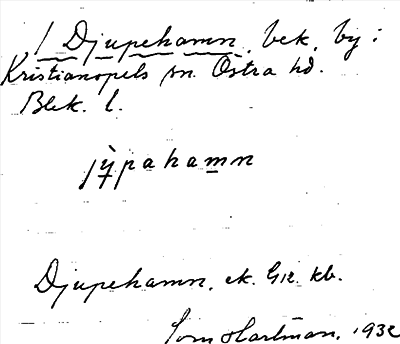 / Djupehamn, bek. by i
Kristianopels sn. Östra hd.
Blek. l.
jỳpahamn
Djupehamn, ek. kb.
Hartman, 1932